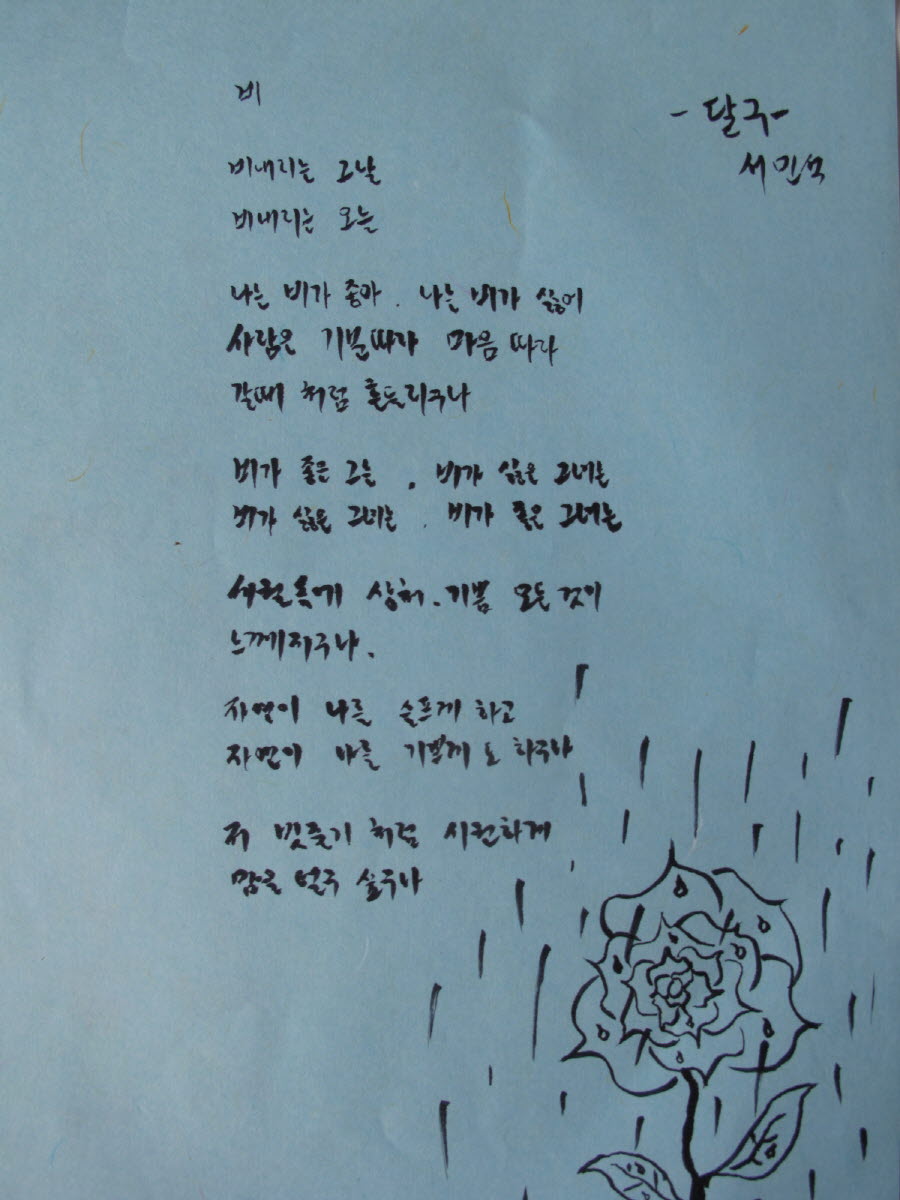 비
- 달구-
서민석
비내리는 그날
비내리는 오늘
나는 비가 좋아. 나는 비가 싫어
사람은 기분따라 마음 따라
갈때 처럼 흔들리구나
비가 좋은 그는, 비가 싫은 그녀는
비가 싫은 그녀는. 비가 좋은 그녀는
세월속에 상처.기쁨 모든 것이
느께지구나.
자연이 나를 슬프게 하고
자연이 나를 기쁘게 도 하구나
저 빗줄기 처럼 시원하게
맘을 열구 싶구나